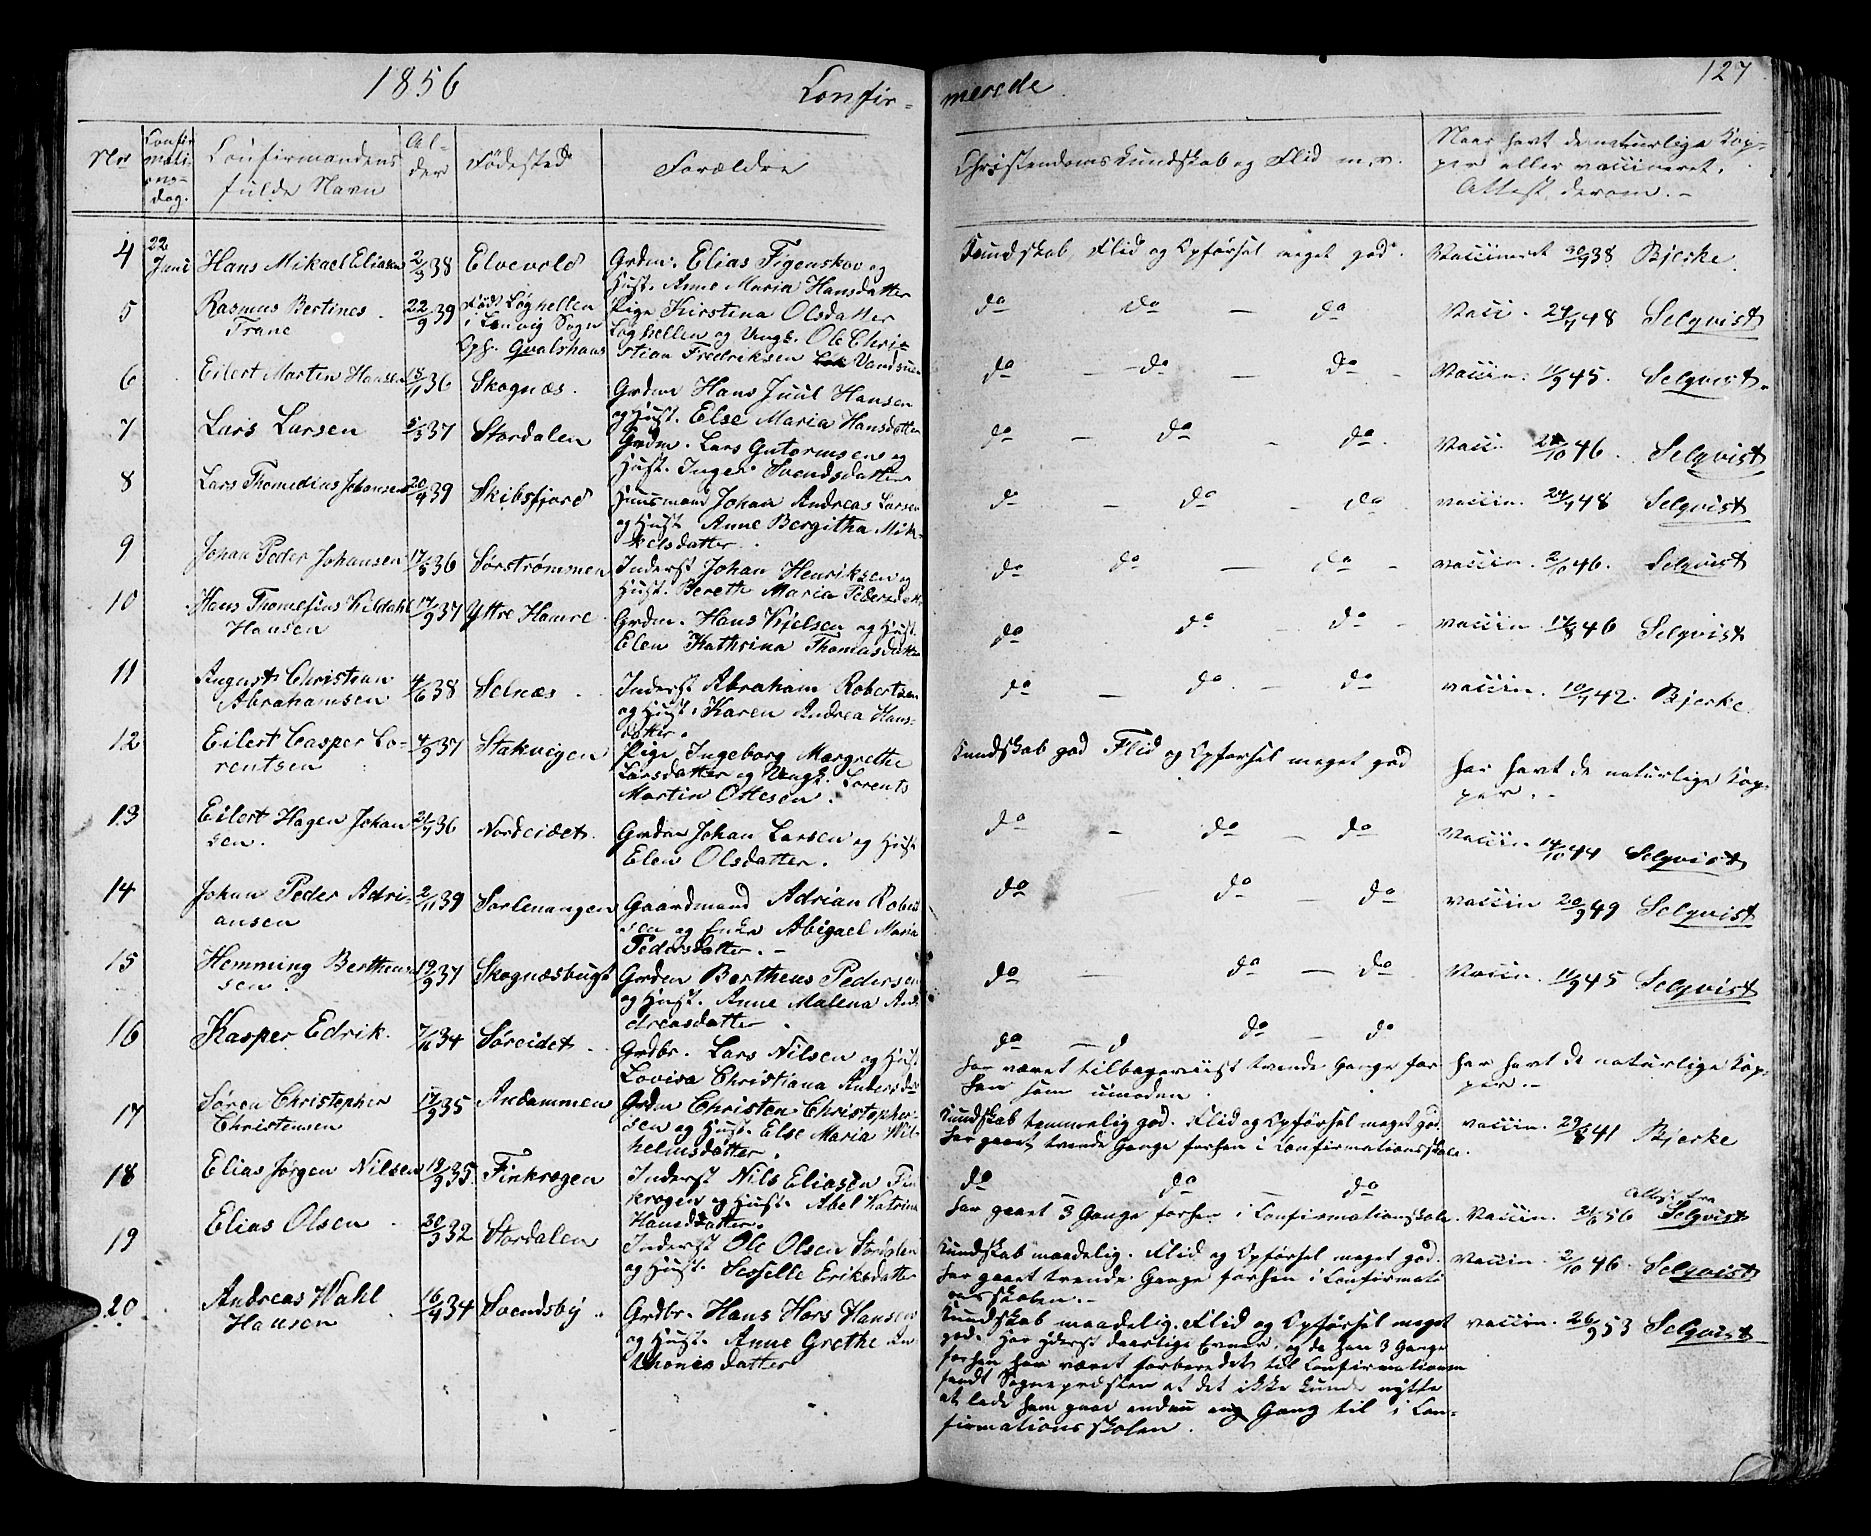 1856 Confir-
merede 127
Nr Confirmationsdag. Confirmandens fulde Navn Alder Fødested Forældre
Christendoms Kundskab og Flid m.v. Naar havt de naturlige Kopper eller vaccineret. Attest derom.-
4 22 Juni Hans Mikael Eliasen 2/3 38 Elvevold Grdm. Elias Figenskov og
Hust. Anne Maria Hansdatter
Kundskab, Flid og Opførsel meget god. Vaccineret 38 Bjerke.
5 Rasmus Bertines 22/9 39 Født Løghellen Pige Kirstina Olsdatter
Trane i Lenvig Sogn Løghellen og Ungk. Ole Chri-
Opf. Qvalshaus stian Fredriksen
do do - do Vacc. 24/7 48 Selqvist
6 Eilert Martin Hansen 18/11 36 Skognæs. Grdm Hans Juul Hansen
og Hust. Else Maria Hansdatter
do - do - do - Vaccin. 11/9 45. Selqvist.
7 Lars Larsen 5/3 37 Stordalen Grdm. Lars Gutormsen og
Hust. Inger Svendsdatter
do - do - do. Vacc. /10 46. Selqvist
8 Lars Thomedius Johansen 20/9 39 Skibsfjord Huusmand Johan Andreas Larsen
og Hust. Anne Bergitha Mik-
kelsdatter.
do - do - do vaccin. 24/7 48 Selqvist
9 Johan Peder Johansen 17/5 36 Sørstrømmen Inderst Johan Henriksen og
Hust. Bereth Maria Pedersdatter
do do - do - vaccin. 46. Selqvist
10 Hans Thomesius Kildahl 17/9 37 Yttre Hamre Grdm. Hans Kjelsen og Hust.
Hansen Elen Kathrina Thomasdatter
do do - do - vaccin. 17/8 46 Selqvist
11 August Christian 4/6 38 Selnæs. Inderst Abraham Robertsen
Abrahamsen og Hust. Karen Andrea Hans-
datter.
do - do. - do vaccin. 10/7 42. Bjerke.
12 Eilert Casper Lo- 4/9 37 Stakvigen Pige Ingeborg Margrethe
rentsen Larsdatter og Ungk. Lorents
Martin Ottesen.
Kundskab god Flid og Opførsel meget god har havt de naturlige Kop-
per.-
13 Eilert Hagen Johan 21/7 36 Nordeidet. Grdm Johan Larsen og Hust
sen. Elen Olsdatter.
do - do - do Vaccin. 14/10 44 Selqvist
14 Johan Peder Adri- 2/11 39 Sørlenangen Gaardmand Adrian Robert
ansen sen og Abigael Maria
Pedersdatter.-
do do - do vaccin 20/9 49 Selqvist
15 Hemming Bertheus 19/9 37 Skognæsbugt Grdm Bertheus Pedersen
sen. og Hust. Anne Malena An-
dreasdatter.
do - do - do Vaccin. 11/9 45 Selqvist
16 Kasper Edrik. 7/11 34 Søreidet. Grdbr. Lars Nilsen og Hust
Lovisa Christiana Andersdatter
do - d do - do
har været tilbageviist trende Gange før har havt de naturlige Kop-
hen som umoden. per.-
17 Søren Christopher 17/9 35 Andammen Grdm Christen Christopher-
Christensen sen og Hust. Else Maria Wil-
helmsdatter.
Kundskab temmelig god. Flid og Opførsel meget god. vaccin. 29/8 41 Bjerke
har gaaet trende Gange forhen i Confirmationsskole.
18 Elias Jørgen Nilsen 19/9 35. Finkrogen Inderst Nils Eliasen Fin
krogen og Hust. Abel Katrina
Hansdatter.
do do - do Attest fra
har gaaet 3 Gange forhen i Confirmationskole. Vaccin. 21/6 56 Selqvist
19 Elias Olsen 30/3 32 Stordalen Inderst Ole Olsen Stordalen
og Hust. Sesselle Eriksdatter
Kundskab maadelig. Flid og Opførsel meget god. vaccin. 2/10 46. Selqvist
har gaaet trende Gange forhen i Confirmati
onsskolen.-
20. Andreas Wahl 16/4 34 Svendsby. Grdbr. Hans Hors Hansen
Hansen og Hust. Anne Grethe An
thonisdatter
Kundskab maadelig. Flid og Opførsel meget vaccin. 26/9 53 Selqvist
god. Har yderst daarlige Evner, og da han 3 Gange
forhen har været forberedet til Confirmationen
fandt Sognepræsten at det ikke kunde nytte
at lade ham gaae endnu en Gang til i Con-
firmationsskolen.